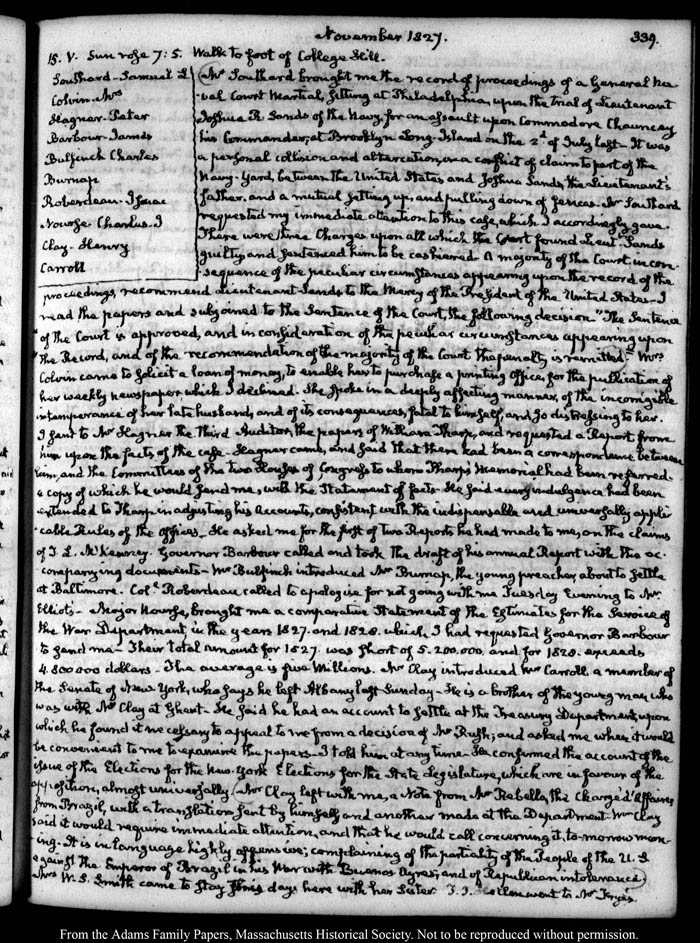 November 1827.
339.
15. V. Sun rose 7: 5. Walk to foot of College Hill.
Southard - Samuel L
Colvin. Mrs
Hagner. Peter
Barbour. James
Bulfinch Charles
Burnap
Roberdeau. Isaac
Nourse Charles. J
Clay. Henry
Carroll
Mr Southard brought me the record of proceedings of a General Na-
val Court Martial, sitting at Philadelphia, upon the trial of Lieutenant
Joshua R. Sands of the Navy, for an assault upon Commodore Chauncey
his Commander, at Brooklyn Long-Island on the 2d of July last - It was
a personal collision and altercation, on a conflict of claim to part of the
Navy-Yard, between the United States and Joshua Sands, the Lieutenant's
father, and a mutual setting up, and pulling down of fences. Mr Southard
requested my immediate attention to this case, which I accordingly gave.
There were three Charges upon all which the Court found Lieut. Sands
guilty and sentenced him to be cashiered. A majority of the Court in con-
sequence of the peculiar circumstances appearing upon the record of the
proceedings, recommend Lieutenant Sands to the Mercy of the President of the United States - I
read the papers and subjoined to the Sentence of the Court, the following decision. "The Sentence
of the Court is approved, and in consideration of the peculiar circumstances appearing upon
the Record, and of the recommendation of the majority of the Court the penalty is remitted - Mrs
Colvin came to solicit a loan of money, to enable her to purchase a printing office, for the publication of
her weekly newspaper which I declined. She spoke in a deeply affecting manner, of the incorrigible
intemperance of her late husband, and of its consequences, fatal to himself, and so distressing to her.
I sent to Mr Hagner the third Auditor, the papers of William Tharp, and requested a Report from
him upon the facts of the case - Hagner came, and said that there had been a correspondence between
him, and the Committees of the two Houses of Congress to whom Tharp's Memorial had been referred.
a copy of which he would send me, with the Statement of facts. He said every indulgence had been
extended to Tharp in adjusting his Accounts, consistent with the indispensable and universally appli-
cable Rules of the offices - He asked me for the first of two Reports he had made to me, on the claims
of T. L. McKenney. Governor Barbour called and took the draft of his annual Report with the ac-
companying documents - Mr Bulfinch introduced Mr Burnap, the young preacher, about to settle
at Baltimore. Coll Roberdeau called to apologise for not going with me Tuesday Evening to Mr
Elliot's - Major Nourse, brought me a comparative Statement of the Estimates for the Service of
the War Department in the years 1827. and 1828. which I had requested Governor Barbour
to send me - Their total amount for 1827. was short of 5.200.000. and for 1828. exceeds
4.800 000 dollars - The average is five Millions. Mr Clay introduced Mr Carroll, a member of
the Senate of New York, who says he left Albany last Sunday - He is a brother of the young man who
was with Mr Clay at Ghent - He said he had an account to settle at the Treasury Department, upon
which he found it necessary to appeal to me from a decision of Mr Rush; and asked me when it would
be convenient to me to examine the papers - I told him at any time - He confirmed the account of the
issue of the Elections for the New-York Elections for the State Legislature, which are in favour of the
opposition, almost universally. Mr Clay left with me, a Note from Mr Rebello, the Chargé d'Affaires
from Brazil, with a translation sent by himself, and another made at the Department. Mr Clay
said it would require immediate attention, and that he would call concerning it, to-morrow morn-
ing. It is in language highly offensive; complaining of the partiality of the People of the U.S
against the Emperor of Brazil in his War with Buenos Ayres, and of Republican intolerance.
Mrs W. S. Smith came to stay some days here with her Sister. went to Mr
From the Adams Family Papers, Massachusetts Historical Society. Not to be reproduced without permission.